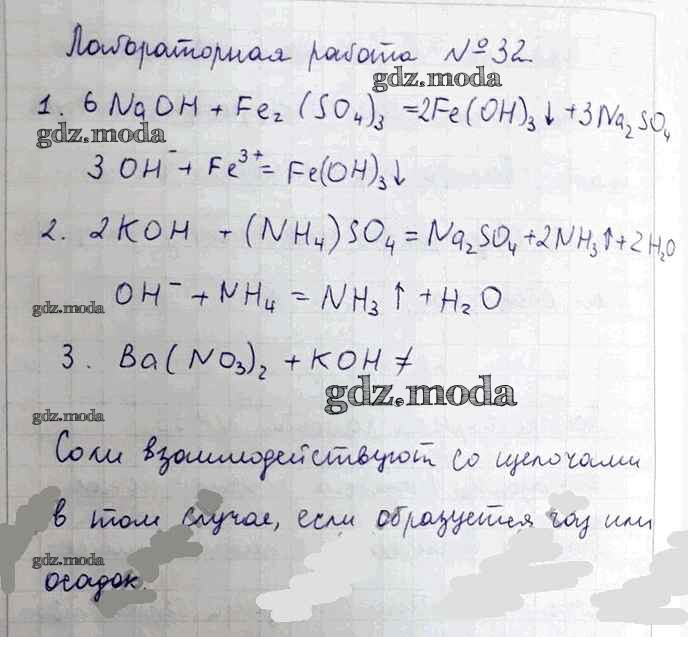 Лабораторная работа № 32
gdz.moda
1. 6 NaOH + Fe₂(SO₄)₃ = 2Fe(OH)₃↓ + 3Na₂SO₄
gdz.moda
3 OH⁻ + Fe³⁺ = Fe(OH)₃↓
2. 2KOH + (NH₄)SO₄ = Na₂SO₄ + 2NH₃↑ + 2H₂O
OH⁻ + NH₄ = NH₃↑ + H₂O
gdz.moda
3. Ba(NO₃)₂ + KOH ≠
gdz.moda
gdz.moda
Соли взаимодействуют со щелочами
в том случае, если образуется газ или
gdz.moda
осадок.